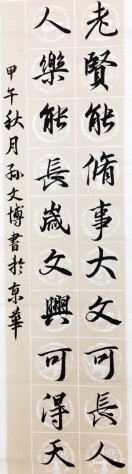 老賢能脩事大文可長人
人樂能長歲文興可得天
甲午秋月孫文博書於京華